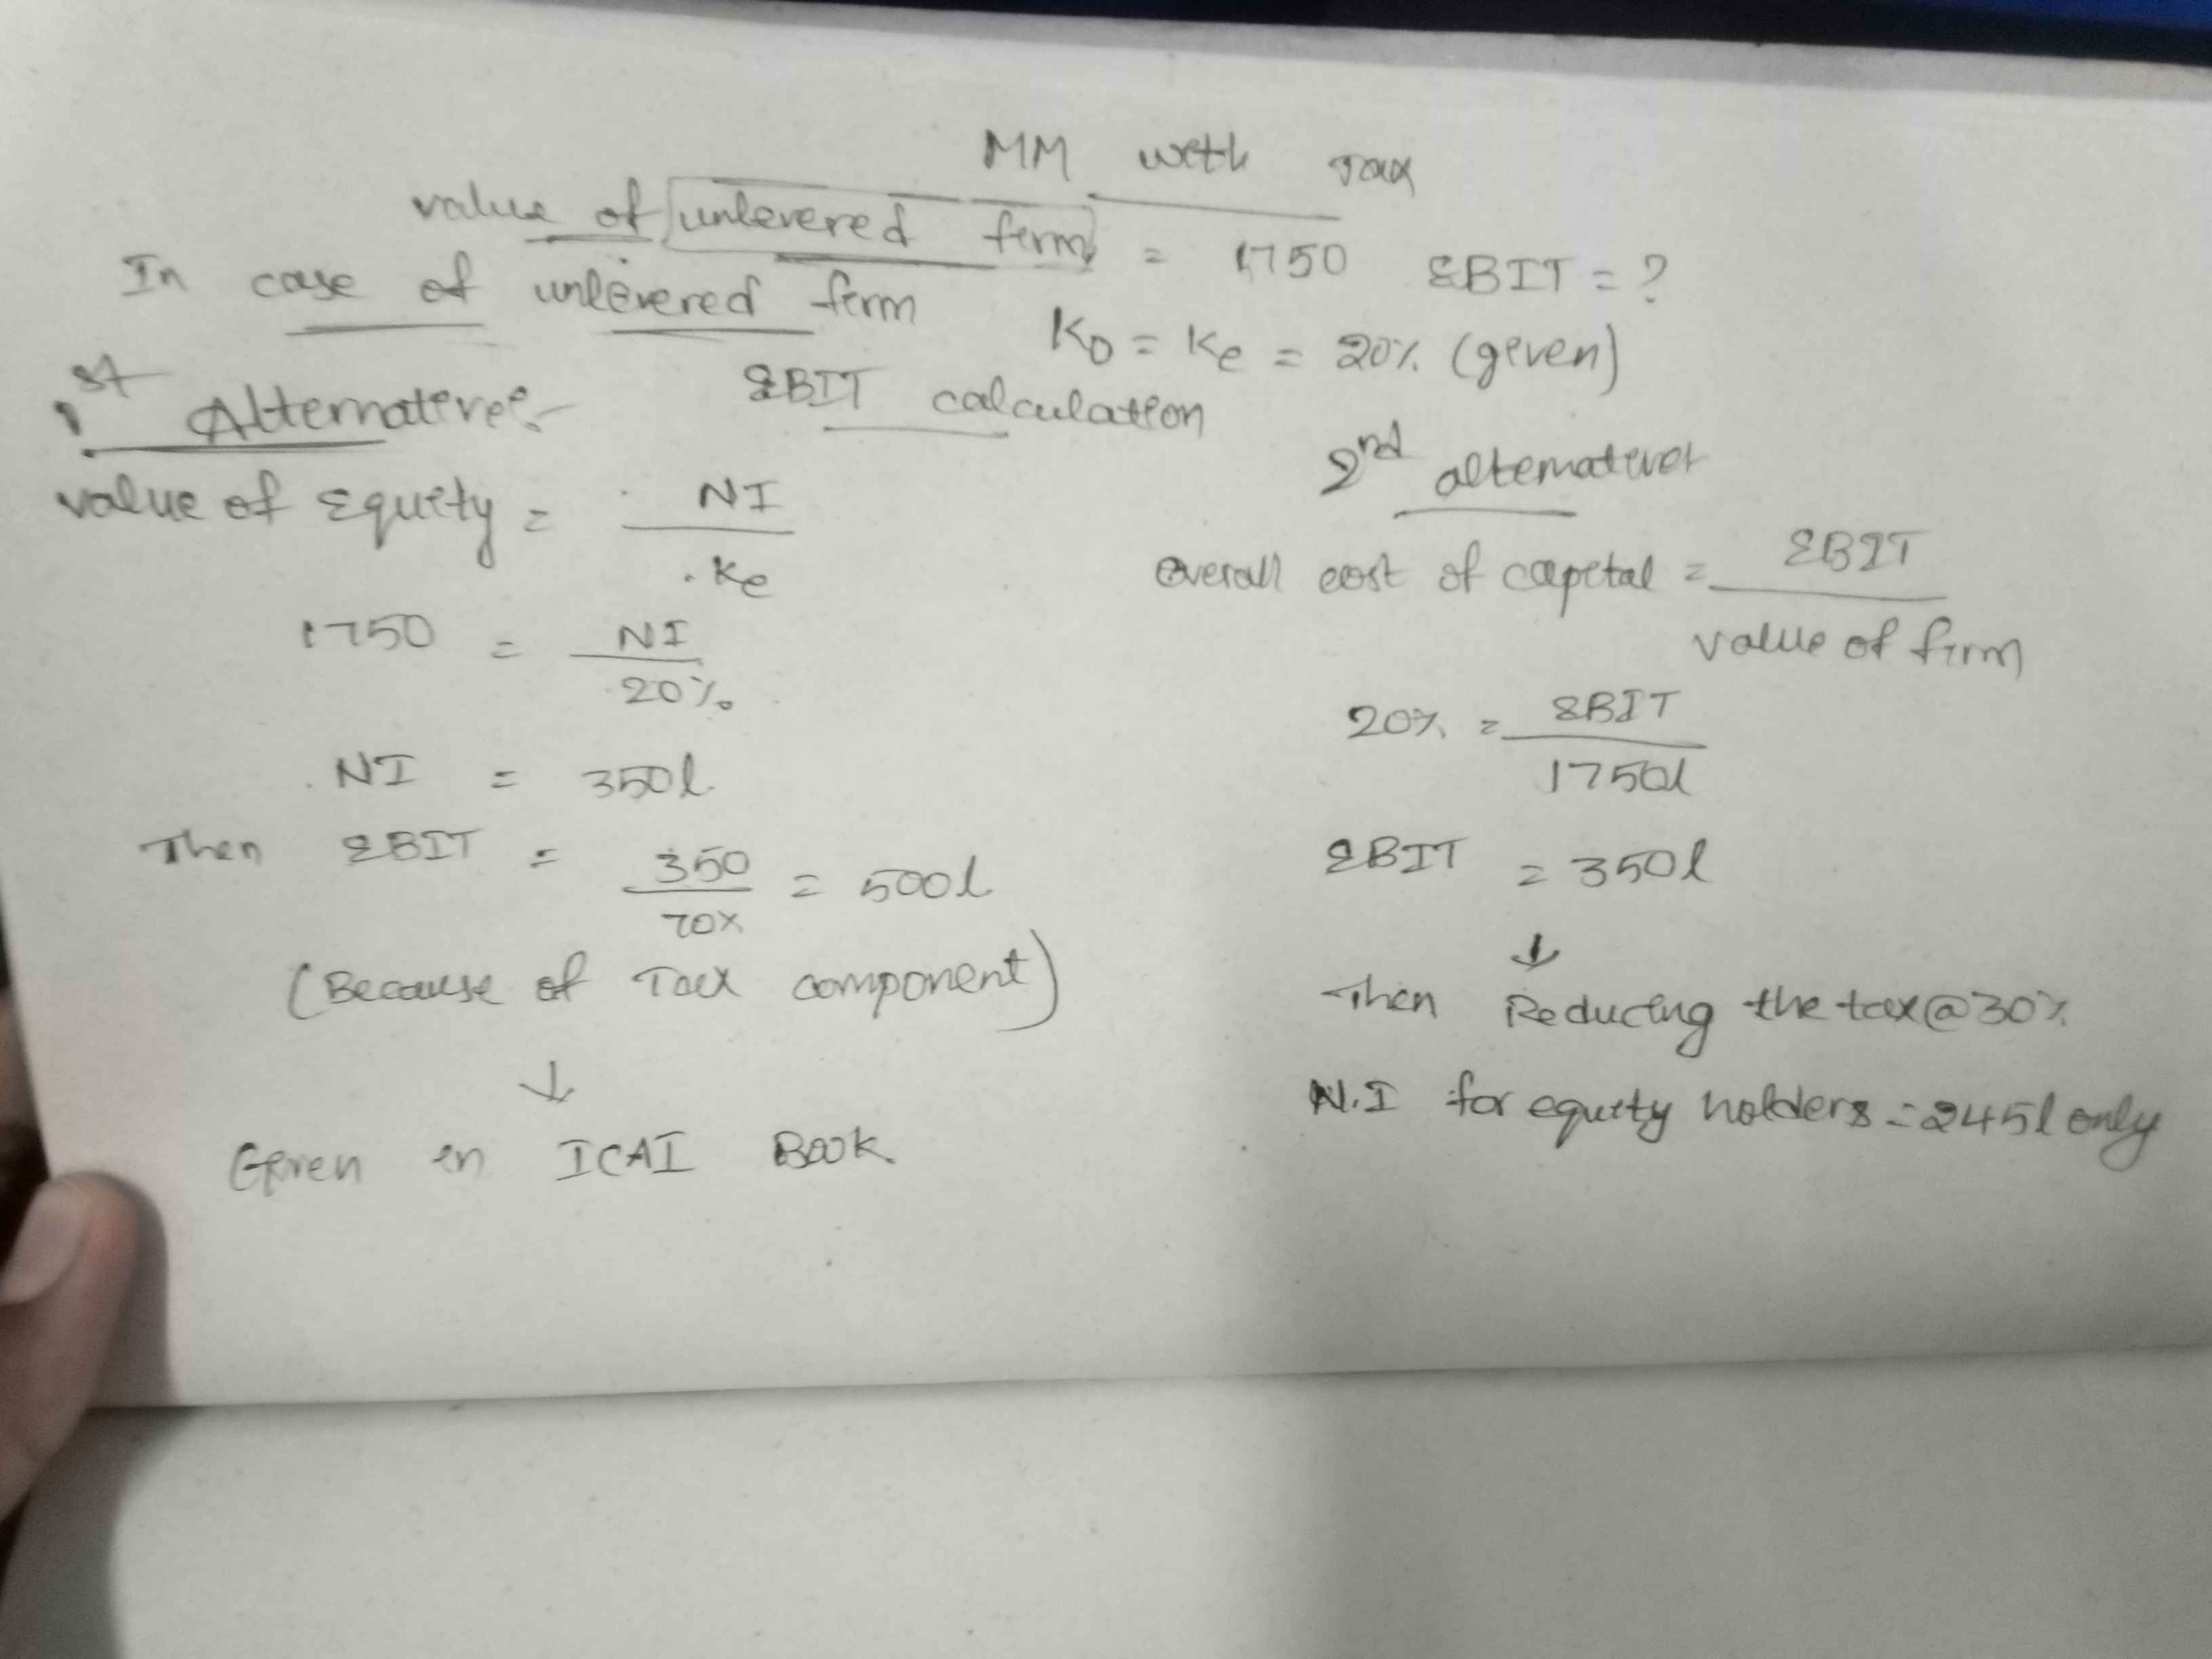 MM with Tax
value of unlevered firm = 1750 EBIT = ?
In case of unlevered firm
Ko = Ke = 20% (given)
1st Alternative:-
EBIT calculation
value of Equity = NI / Ke
1750 = NI / 20%
NI = 350l
Then EBIT = 350 / 70% = 500l
(Because of Tax component)
↓
Given in ICAI Book
2nd alternative
overall cost of capital = EBIT / value of firm
20% = EBIT / 1750l
EBIT = 350l
↓
Then Reducing the tax@30%
N.I for equity holders = 245l only